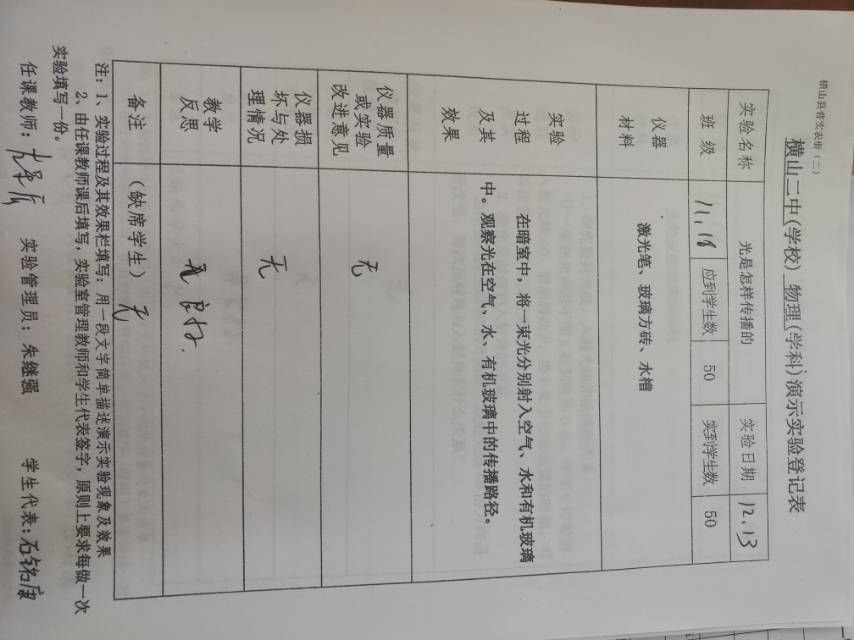 横山县普实表册（二）
横山二中(学校) 物理(学科)演示实验登记表
实验名称 光是怎样传播的 实验日期 12.13
班级 11,18 应到学生数 50 实到学生数 50
仪器材料 激光笔、玻璃方砖、水槽
实验过程及其效果
在暗室中，将一束光分别射入空气、水和有机玻璃
中。观察光在空气、水、有机玻璃中的传播路径。
仪器质量或实验改进意见 无
仪器损坏与处理情况 无
教学反思 良好.
备注 （缺席学生）无
注：1、实验过程及其效果栏填写：用一段文字简单描述演示实验现象及效果
2、由任课教师课后填写，实验室管理教师和学生代表签字，原则上要求每做一次
实验填写一份。
任课教师： 实验管理员：朱继强 学生代表：石铭康